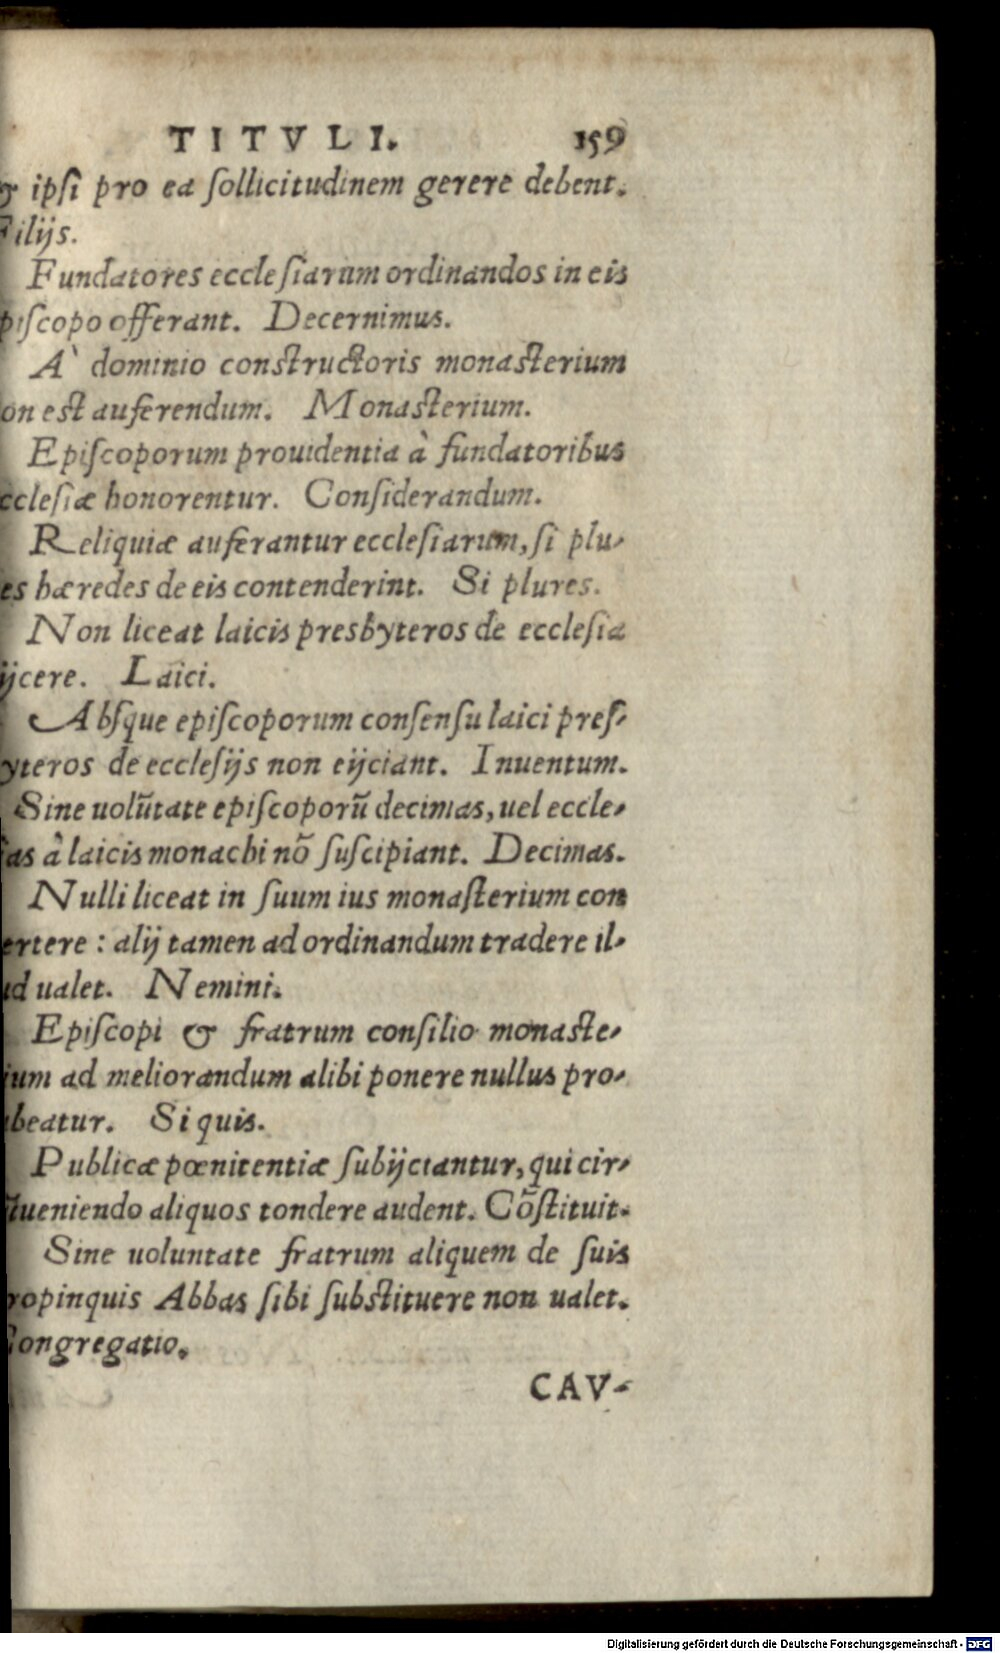 TITVLI. 159
& ipsi pro ea sollicitudinem gerere debent.
Filijs.
Fundatores ecclesiarum ordinandos in eis
piscopo offerant. Decernimus.
A` dominio constructoris monasterium
on est auferendum. Monasterium.
Episcoporum prouidentia à fundatoribus
cclesiæ honorentur. Considerandum.
Reliquiæ auferantur ecclesiarum, si plu-
es hæredes de eis contenderint. Si plures.
Non liceat laicis presbyteros de ecclesia
ijcere. Laici.
Absque episcoporum consensu laici pres-
yteros de ecclesijs non eijciant. Inuentum.
Sine uolũtate episcoporũ decimas, uel eccle-
as à laicis monachi nõ suscipiant. Decimas.
Nulli liceat in suum ius monasterium con
ertere : alij tamen ad ordinandum tradere il-
ud ualet. Nemini.
Episcopi & fratrum consilio monaste-
ium ad meliorandum alibi ponere nullus pro-
beatur. Si quis.
Publicæ pœnitentiæ subijciantur, qui cir-
ũueniendo aliquos tondere audent. Cõstituit.
Sine uoluntate fratrum aliquem de suis
ropinquis Abbas sibi substituere non ualet.
Congregatio.
CAV-
Digitalisierung gefördert durch die Deutsche Forschungsgemeinschaft - DFG